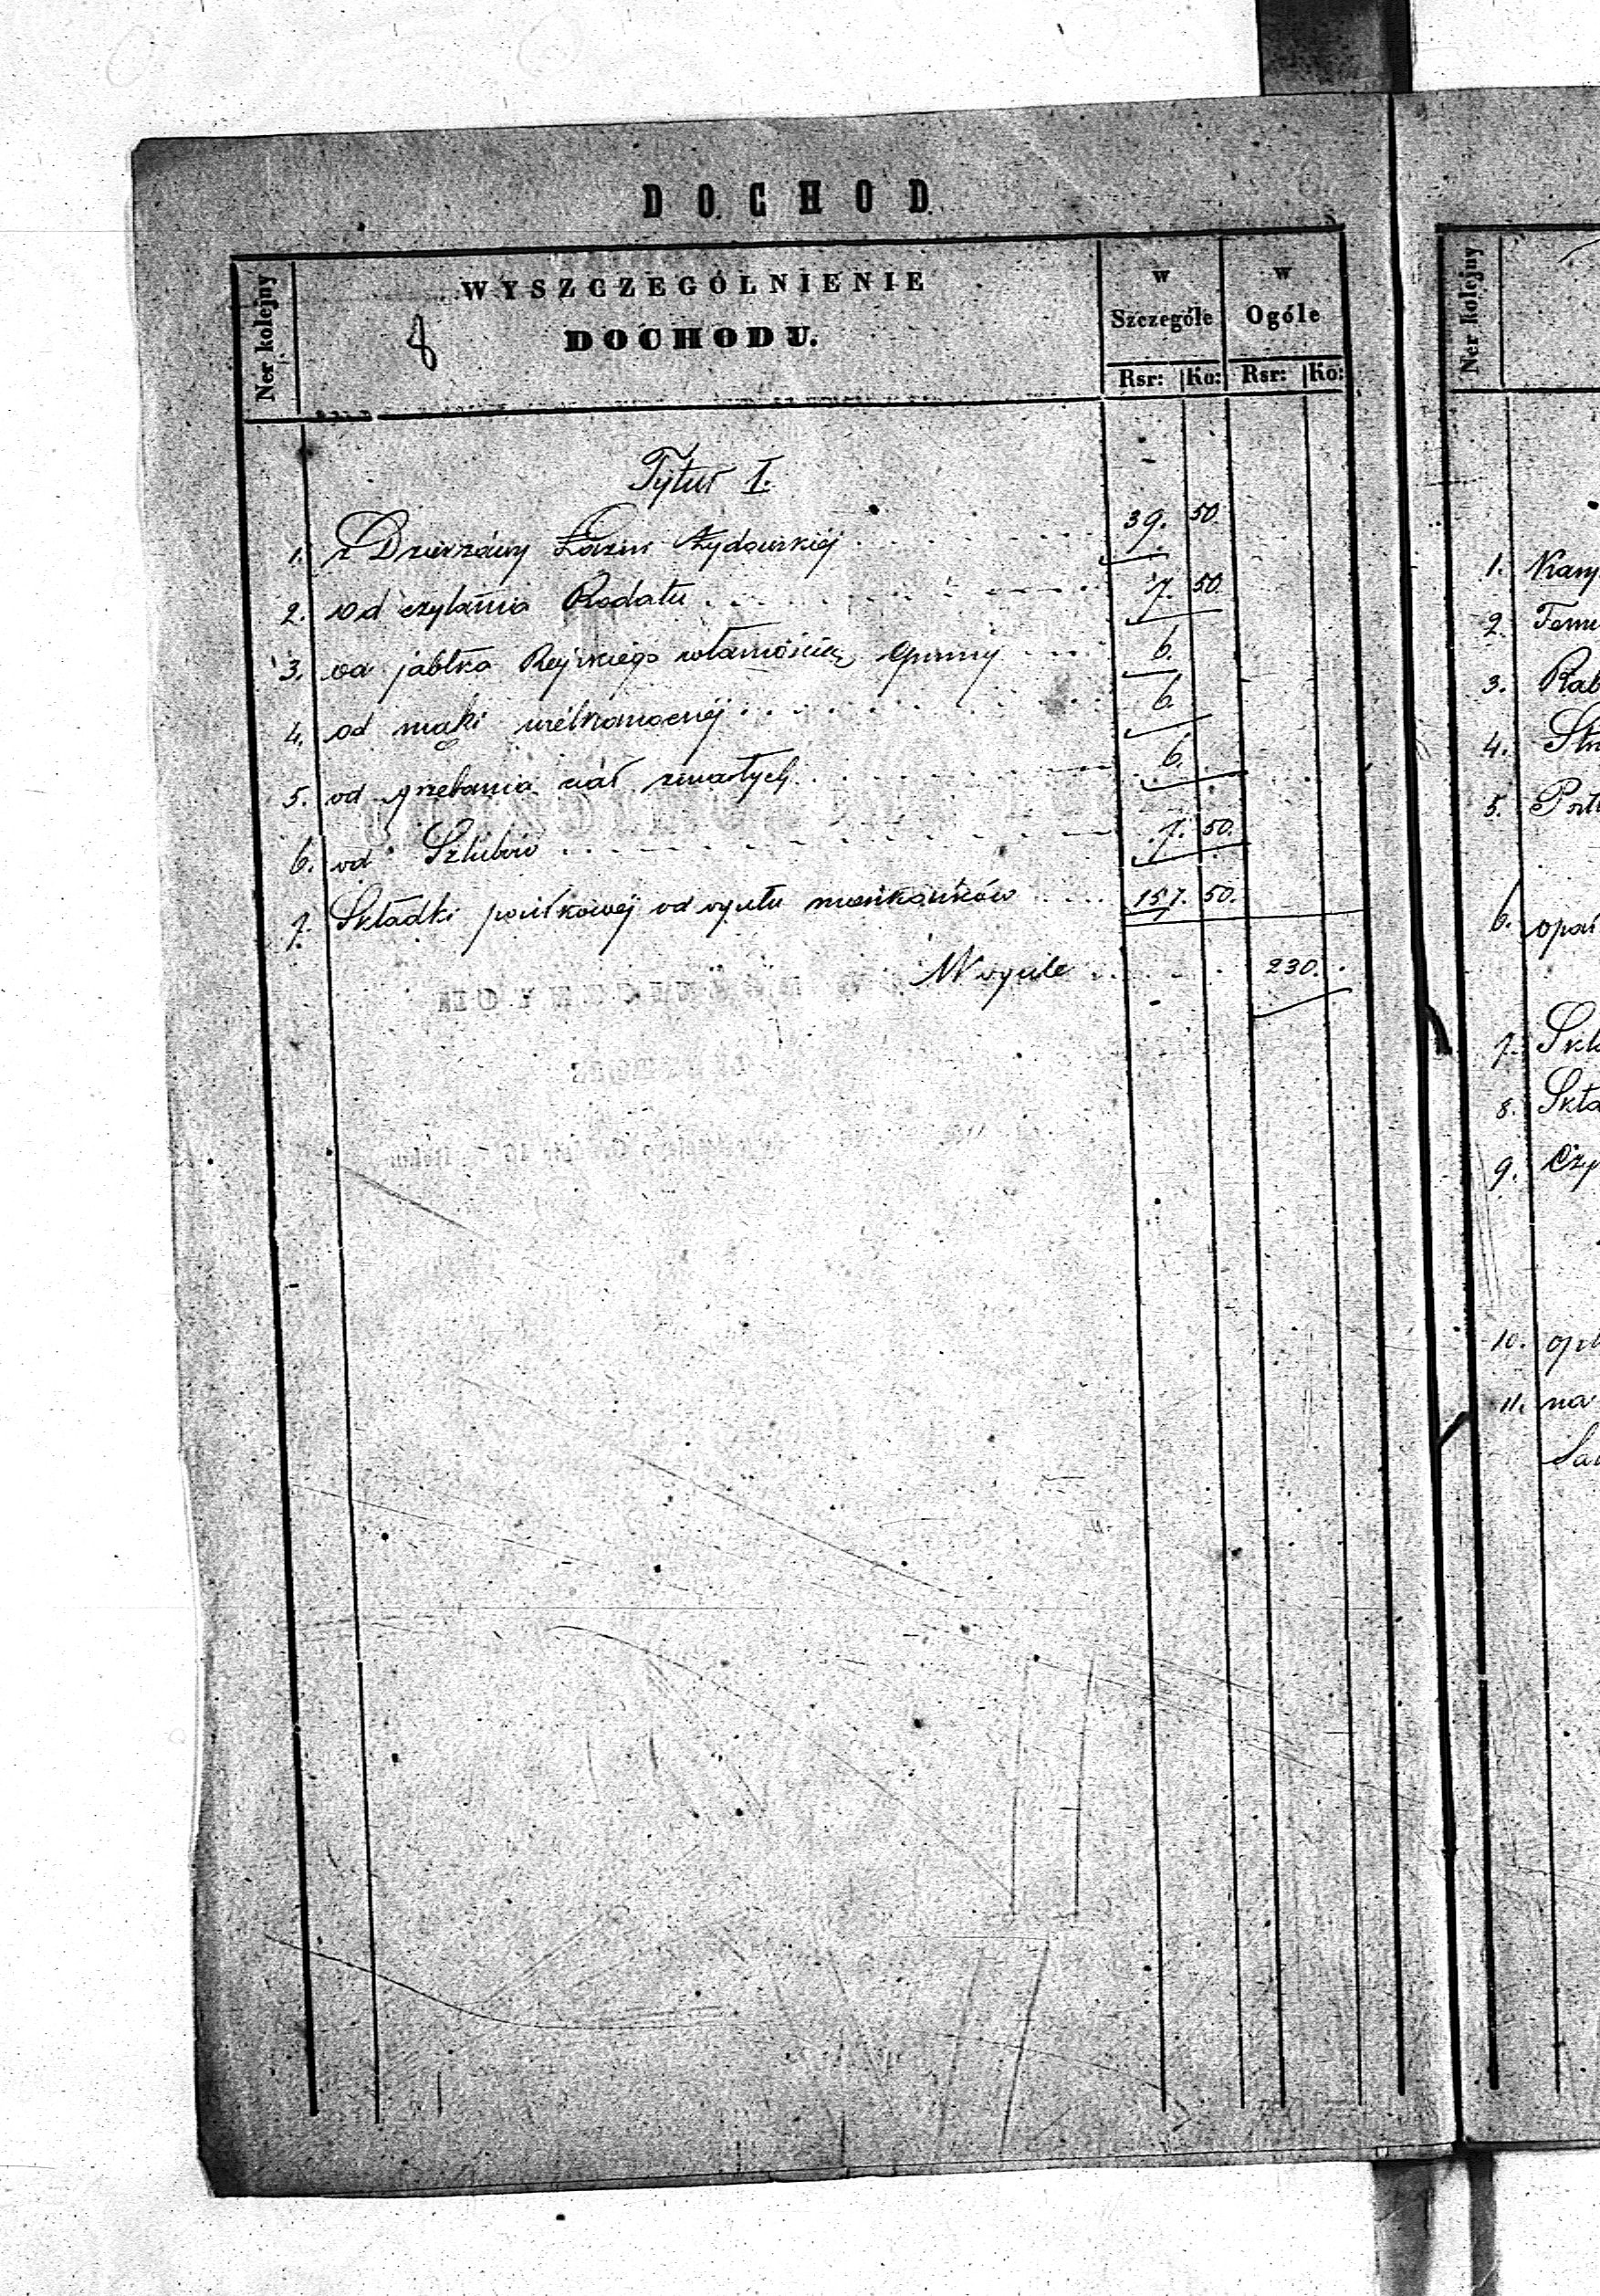 DOCHOD
Ner kolejny
WYSZCZEGÓLNIENIE
DOCHODU.
8
w Szczególe
w Ogóle
Rsr: Ko: Rsr: Ko:
Tytuł I.
1. z Dzierżawy Łaźni Żydowskiéj 39. 50
2. od czytania Rodału 7. 50.
3. od jabłka Rajskiego własnością Gminy 6.
4. od mąki wielkanocnéj 6.
5. od grzebania ciał zmarłych 6.
6. od Szlubów 7. 50.
7. Składki od ogułu mieszkańców 157. 50.
W ogule 230.
Ner kolejny
1.
2.
3. Rab
4.
5.
6. opał
7. Skła
8. Skła
9. Czy
10.
11. na